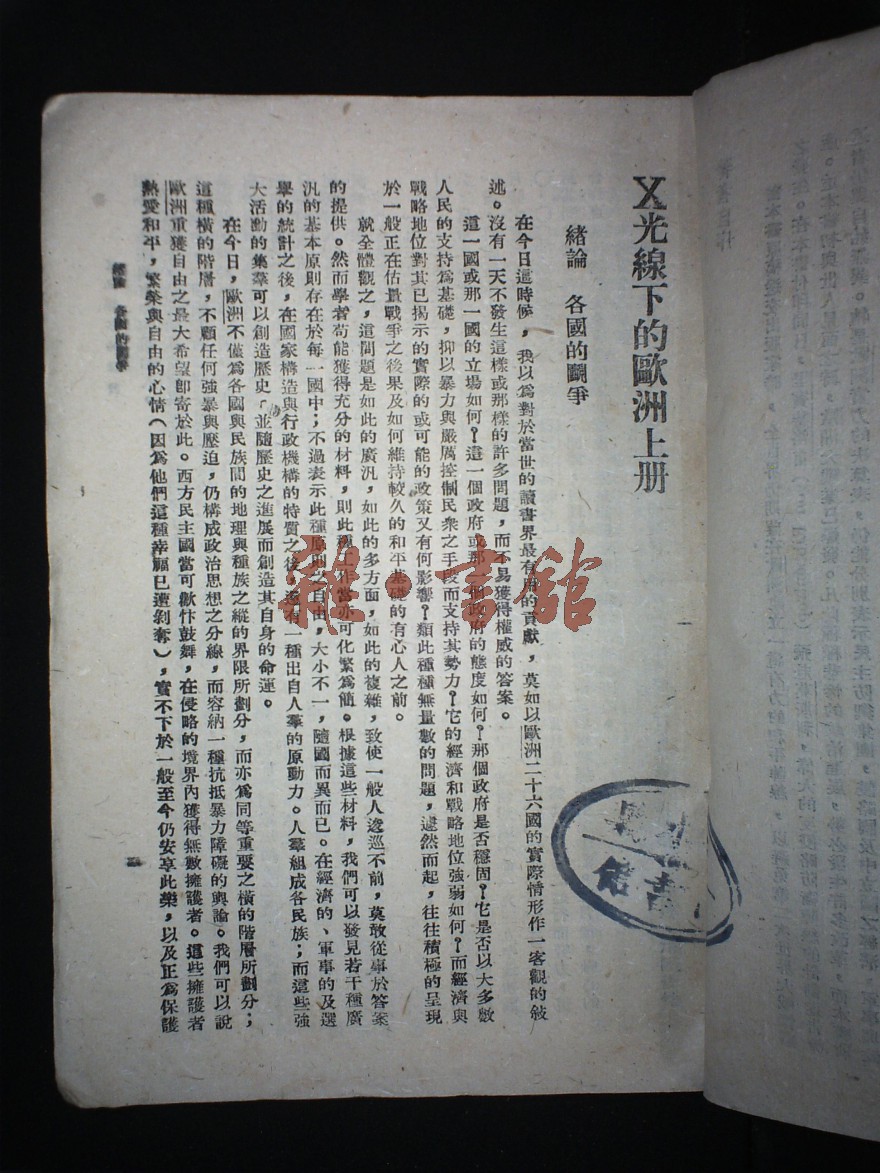 X光線下的歐洲上册
緒論　各國的鬭爭
在今日這時候，我以爲對於當世的讀書界最有用的貢獻，莫如以歐洲二十六國的實際情形作一客觀的敍
述。沒有一天不發生這樣或那樣的許多問題，而不易獲得權威的答案。
這一國或那一國的立場如何？這一個政府或那一個政府的態度如何？那個政府是否穩固？它是否以大多數
人民的支持爲基礎，抑以暴力與嚴厲控制民衆之手段而支持其勢力？它的經濟和戰略地位強弱如何？而經濟與
戰略地位對其已揭示的實際的或可能的政策又有何影響？類此種種無量數的問題，遽然而起，往往積極的呈現
於一般正在估量戰爭之後果及如何維持較久的和平基礎的有心人之前。
就全體觀之，這問題是如此的廣汎，如此的多方面，如此的複雜，致使一般人逡巡不前，莫敢從事於答案
的提供。然而學者苟能獲得充分的材料，則此種工作當亦可化繁爲簡。根據這些材料，我們可以發見若干種廣
汎的基本原則存在於每一國中；不過表示此種原則之自由，大小不一，隨國而異而已。在經濟的、軍事的及選
舉的統計之後，在國家構造與行政機構的特質之後，還有一種出自人羣的原動力。人羣組成各民族；而這些強
大活動的集羣可以創造歷史，並隨歷史之進展而創造其自身的命運。
在今日，歐洲不僅爲各國與民族間的地理與種族之縱的界限所劃分，而亦爲同等重要之橫的階層所劃分；
這種橫的階層，不顧任何強暴與壓迫，仍構成政治思想之分線，而容納一種抗抵暴力障礙的輿論。我們可以說
歐洲重獲自由之最大希望卽寄於此。西方民主國當可歡忭鼓舞，在侵略的境界內獲得無數擁護者。這些擁護者
熱愛和平，繁榮與自由的心情（因爲他們這種幸福已遭剝奪），實不下於一般至今仍安享此樂，以及正爲保護
緒論　各國的鬭爭
一
雜·書館